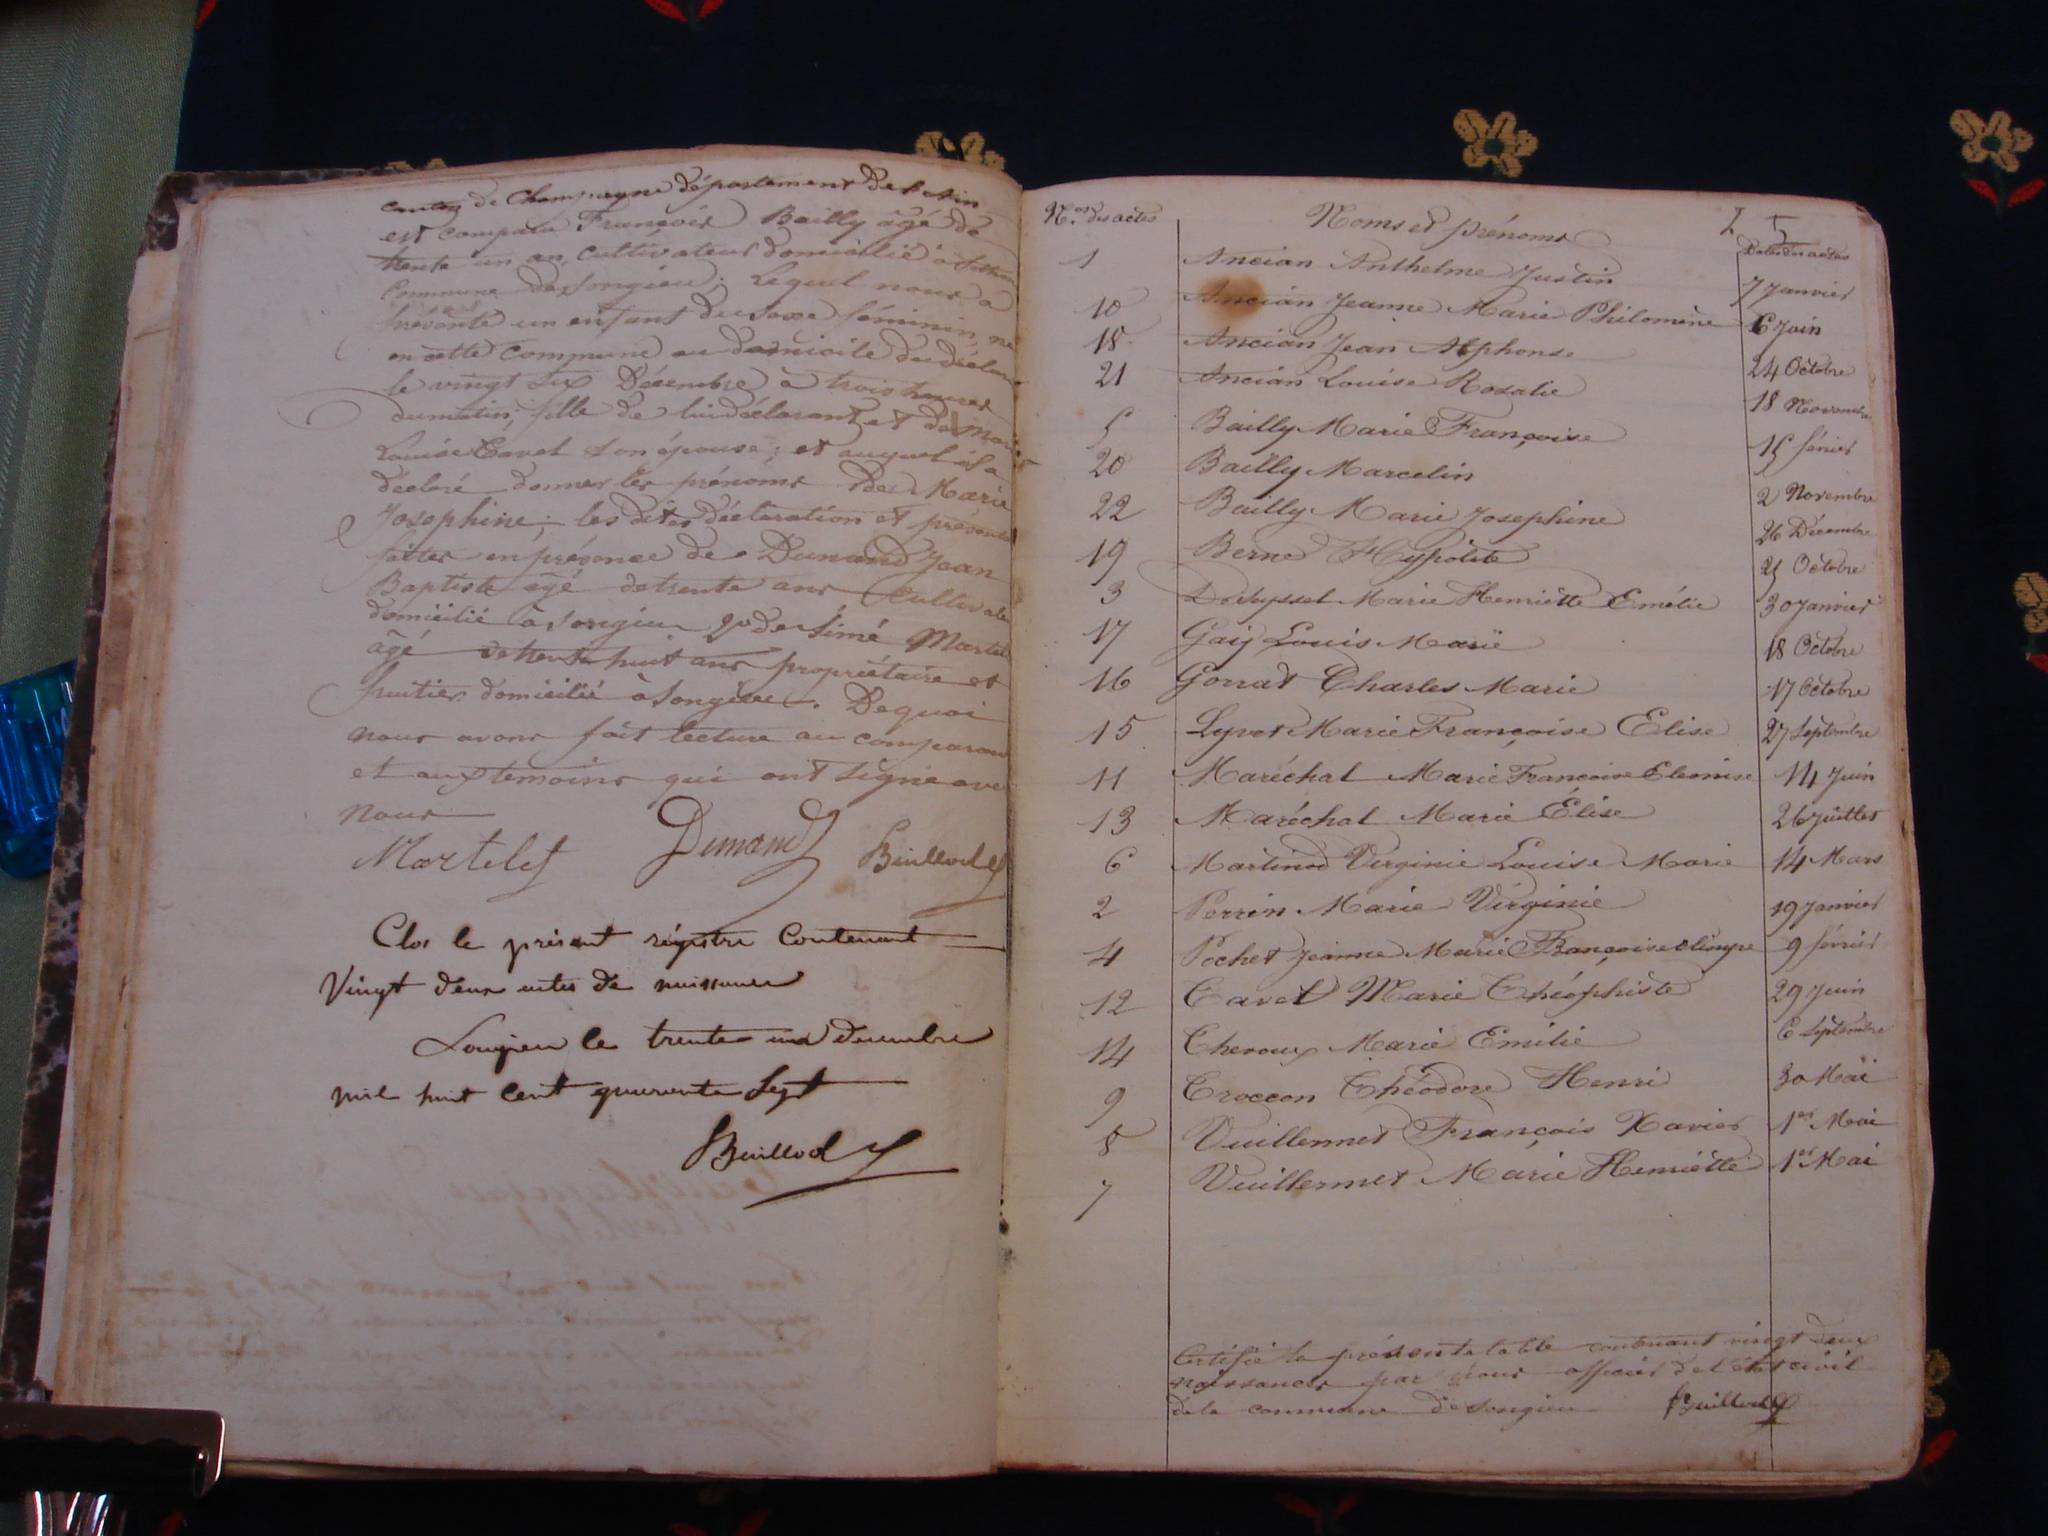 canton de Champagne département de l'Ain
est comparu François Bailly âgé de
trente un an, cultivateur domicilié à
Commune de Songieu; Lequel nous a
présenté un enfant du sexe féminin, né
en cette Commune au domicile du déclar
le vingt six Décembre à trois heures
du matin, fille de lui déclarant et de Marie
Louise Tavel son épouse; et auquel il a
déclaré donner les prénoms de Marie
Josephine; les dites déclaration et présent
faites en présence de Dunand Jean
Baptiste agé de trente ans Cultivate
domicilié à Songieu 2° de Aimé Martel
âgé de trente huit ans propriétaire et
domicilié à Songieu. De quoi
nous avons fait lecture au comparant
et aux temoins qui ont signé avec
nous
Martelet Dunand Buillod
Clos le présent régistre Contenant
Vingt deux actes de naissance
Songieu le trente un decembre
mil huit cent quarante Sept
Buillod
N.os des actes Noms et prénoms Dates des actes
1 Ancian Anthelme Justin 7 Janvier
10 Ancian Jeanne Marie Philomène 6 Juin
18 Ancian Jean Alphonse 24 Octobre
21 Ancian Louise Rosalie 18 Novembre
5 Bailly Marie Françoise 15 février
20 Bailly Marcelin 2 Novembre
22 Bailly Marie Josephine 26 Décembre
19 Berne Hyppolite 25 Octobre
3 Marie Henriètte Emélie 30 Janvier
17 Gaij Louis Marie 18 Octobre
16 Gorrat Charles Marie 17 Octobre
15 Lyvet Marie Françoise Elise 27 Septembre
11 Maréchal Marie Françoise Eleonise 14 Juin
13 Maréchal Marie Élise 26 Juillet
6 Martinod Virginie Louise Marie 14 Mars
2 Perrin Marie Virginie 19 Janvier
4 Pochet Jeanne Marie Françoise Olimpe 9 février
12 Tavel Marie Théophiste 29 Juin
14 Theroux Marie Emilie 6 Septembre
9 Troccon Théodore Henri 30 Mai
8 Vuillermet François Xavier 1er Mai
7 Vuillermet Marie Henriètte 1er Mai
Certifié la présente table contenant vingt deux
naissances par nous officier de l'état civil
de la commune de Songieu Buillod